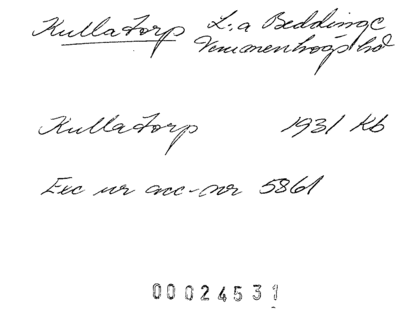 Kullatorp L:a Beddinge
Vemmenhögs hd
Kullatorp 1931 Kb
Exc ur acc-nr 5861
00024531